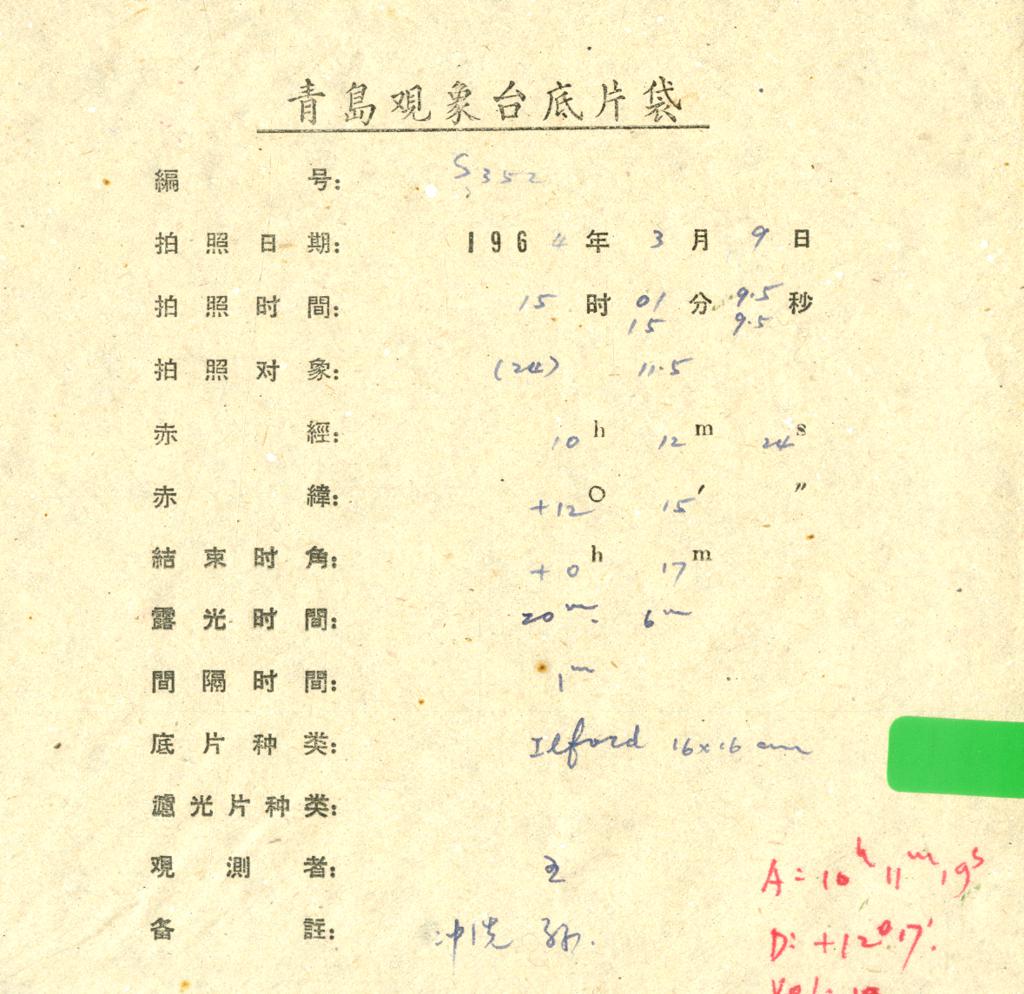 青島观象台底片袋
編号: S352
拍照日期: 1964年 3月 9日
拍照时間: 15时 01分 9.5秒
15 9.5
拍照对象: (24) 11.5
赤經: 10h 12m 24s
赤緯: +12° 15′ ″
結束时角: +0h 17m
露光时間: 20m. 6m
間隔时間: 1m
底片种类: Ilford 16×16 cm
濾光片种类:
观測者: 王
备註: 冲洗 孙.
A: 10h 11m 19s
D: +12°17′.